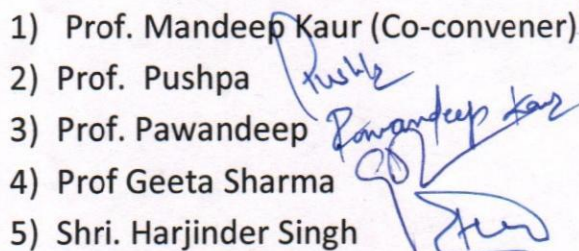 1) Prof. Mandeep Kaur (Co-convener)
2) Prof. Pushpa Pushpa
3) Prof. Pawandeep Pawandeep Kaur
4) Prof Geeta Sharma
5) Shri. Harjinder Singh